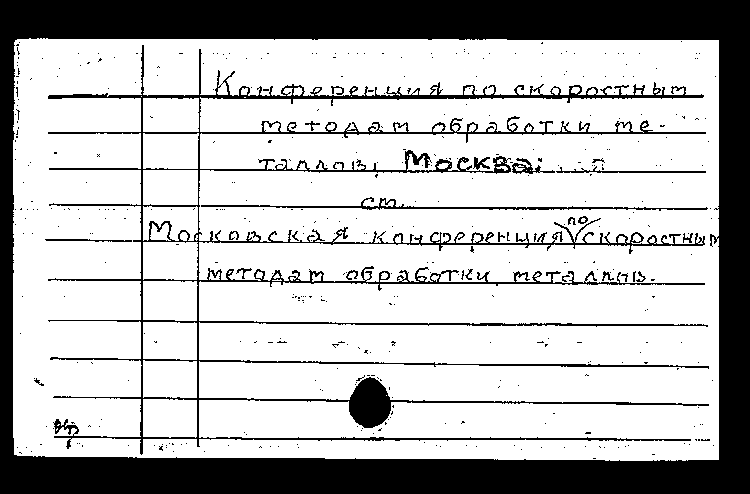 Конференция по скоростным
методам обработки ме-
таллов, Москва.
см.
Московская конференция по скоростным
методам обработки металлов.